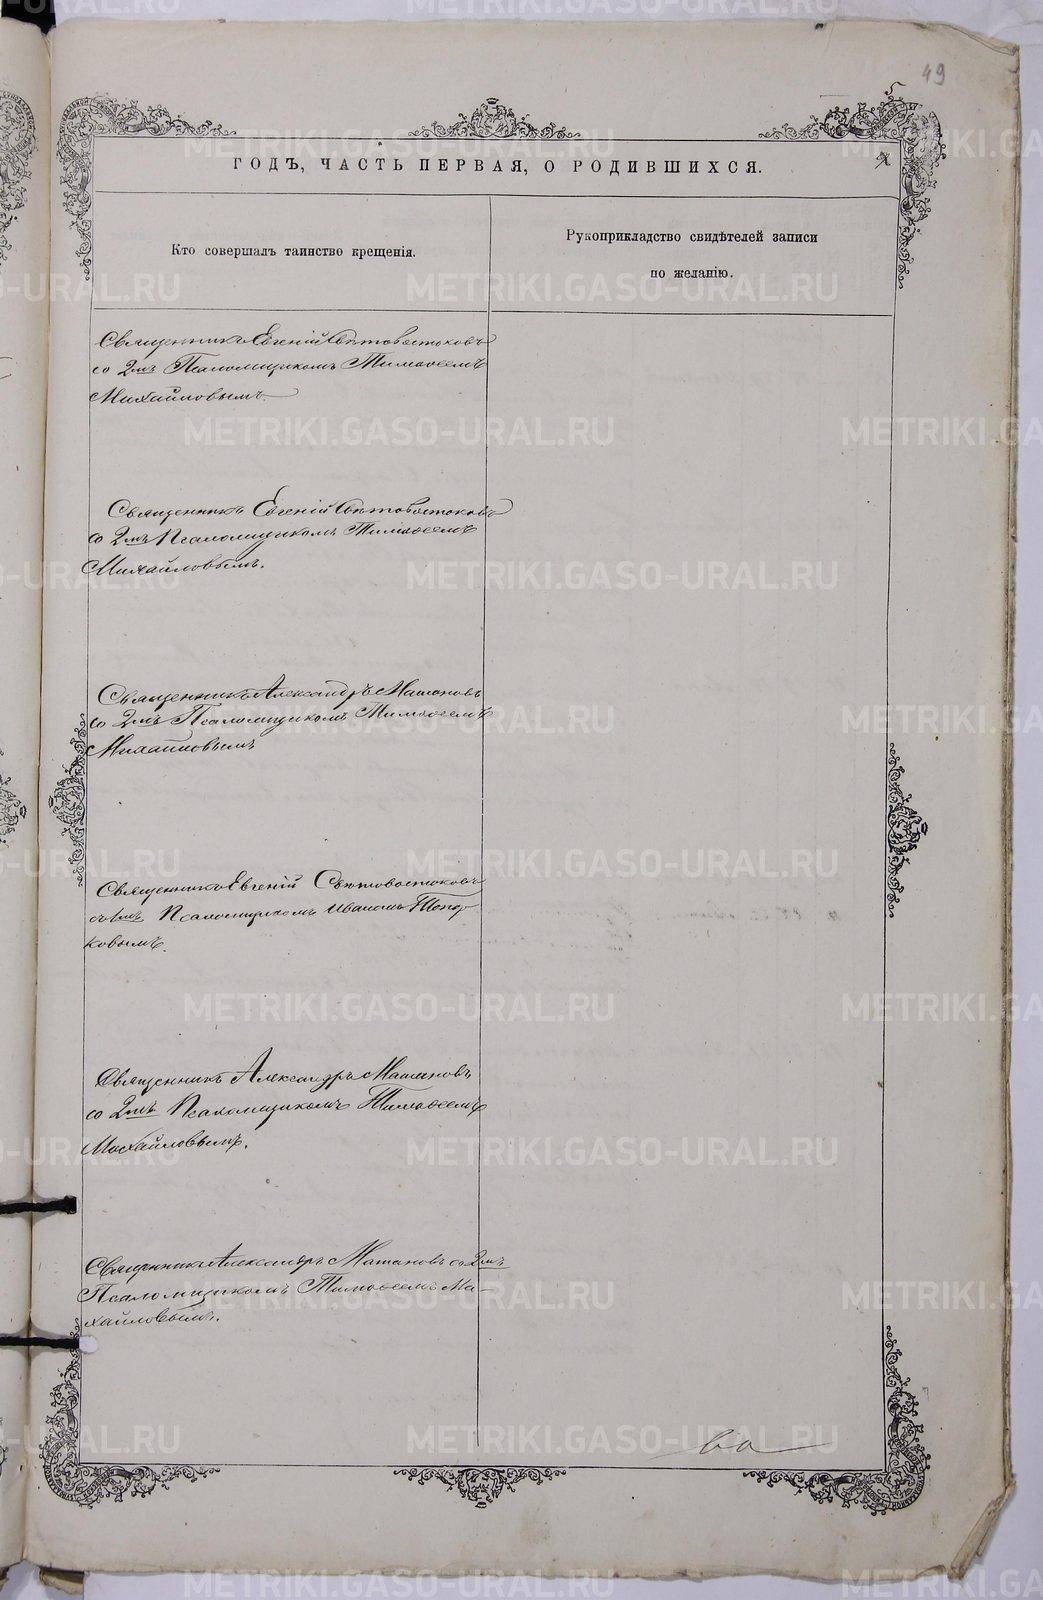 49
5
ГОДЪ, ЧАСТЬ ПЕРВАЯ, О РОДИВШИХСЯ.
Кто совершалъ таинство крещенія.
Рукоприкладство свидѣтелей записи
по желанію.
Священникъ Евгеній Свѣтовостоковъ
со 2мъ Псаломщикомъ Тимоѳеемъ
Михайловымъ.
Священникъ Евгеній Свѣтовостоковъ
со 2мъ Псаломщикомъ Тимоѳеемъ
Михайловымъ.
Священникъ Александръ Матановъ
со 2мъ Псаломщикомъ Тимоѳеемъ
Михайловымъ
Священникъ Евгеній Свѣтовостоковъ
съ 1мъ Псаломщикомъ Иваномъ Топор
ковымъ.
Священникъ Александръ Матановъ
со 2мъ Псаломщикомъ Тимоѳеемъ
Михайловымъ.
Священникъ Александръ Матановъ съ 2мъ
Псаломщикомъ Тимоѳеемъ Ми-
хайловымъ.
METRIKI.GASO-URAL.RU